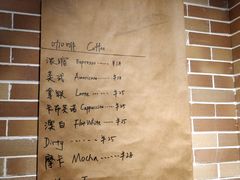 咖啡 Coffee
浓缩 Espresso ······ ¥18
美式 Americano ···· ¥18
拿铁 Latte ······ ¥25
卡布奇诺 Cappuccino ···· ¥25
澳白 Flat White ···· ¥25
Dirty ······ ¥25
摩卡 Mocha ······ ¥28